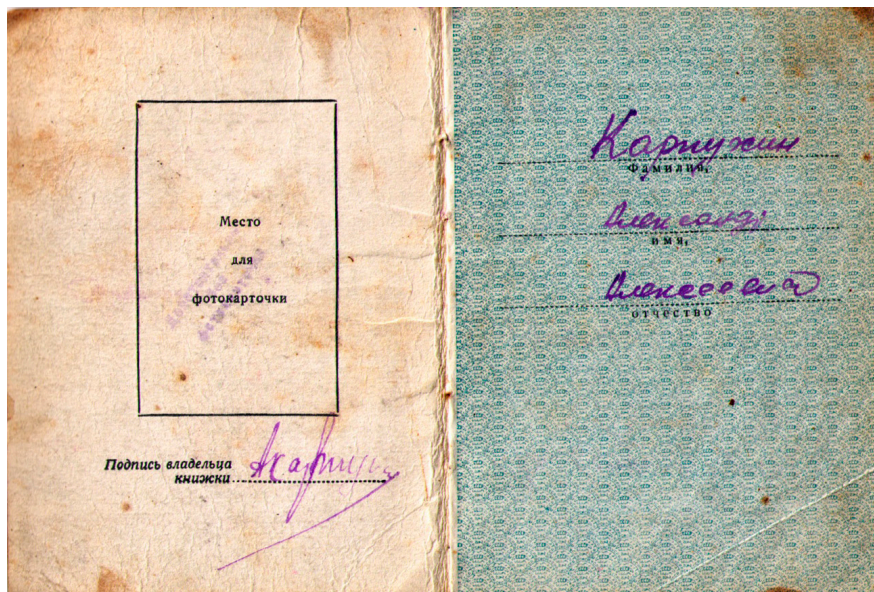 Место
для
фотокарточки
Подпись владельца
книжки
Карпухин
Фамилия,
Александр
имя,
Алексеевич
отчество